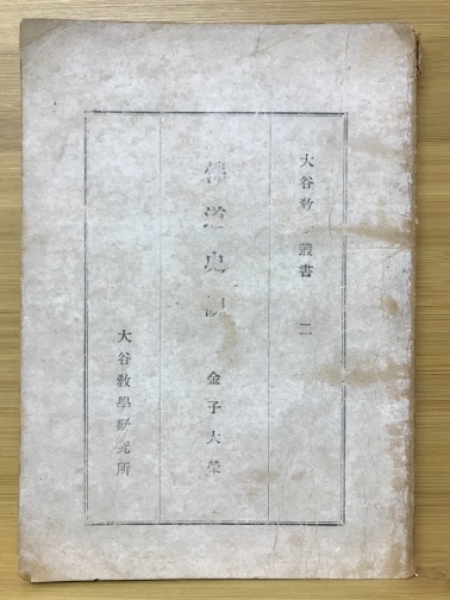 大谷教叢書 二
佛道史觀
金子大榮
大谷教學研究所